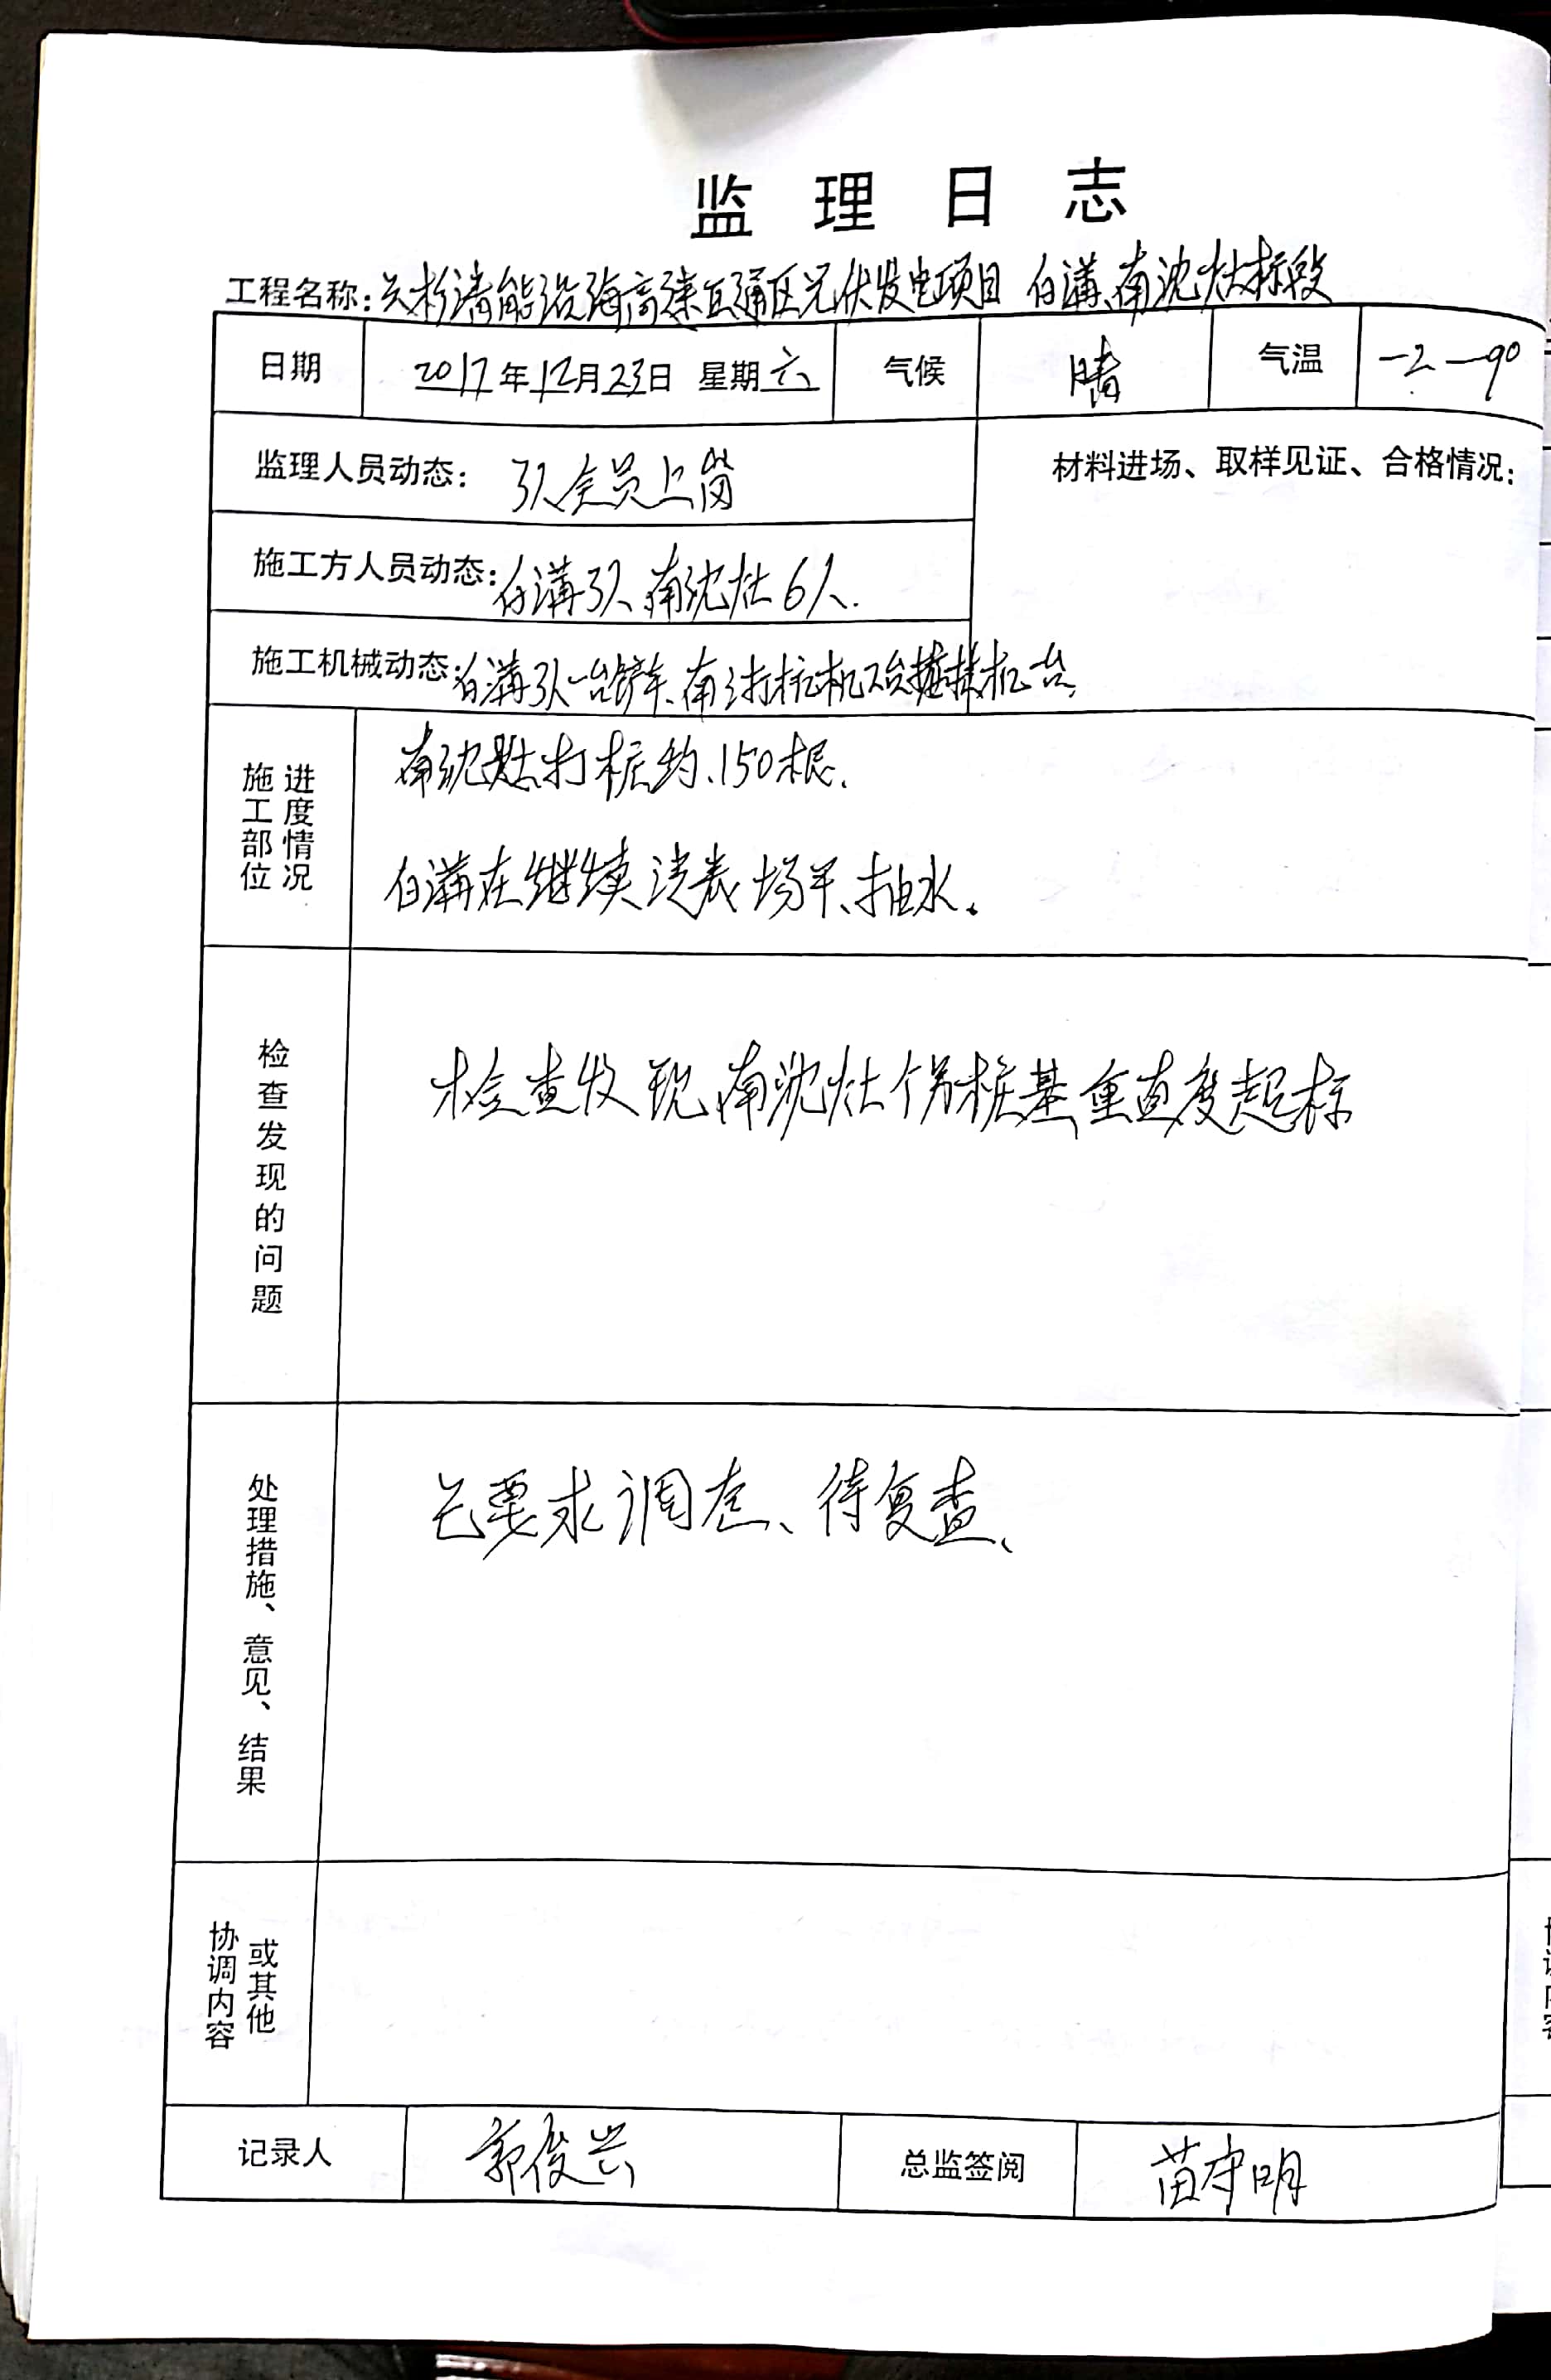 监理日志
工程名称:关杉清能沿海高速互通区光伏发电项目 白溝、南沈灶标段
日期 2017年12月23日 星期六 气候 晴 气温 -2—9°
监理人员动态: 3人全员上岗 材料进场、取样见证、合格情况:
施工方人员动态: 白溝3人 南沈灶6人.
施工机械动态: 白溝3人一台铲车、南沈打桩机 台
施工部位 进度情况
南沈灶打桩约、150根.
白溝在继续清表场平、抽水。
检查发现的问题
检查发现、南沈灶个别桩基垂直度超标
处理措施、意见、结果
已要求调查、待复查、
协调内容 或其他
记录人 郭俊兴 总监签阅 苗守明